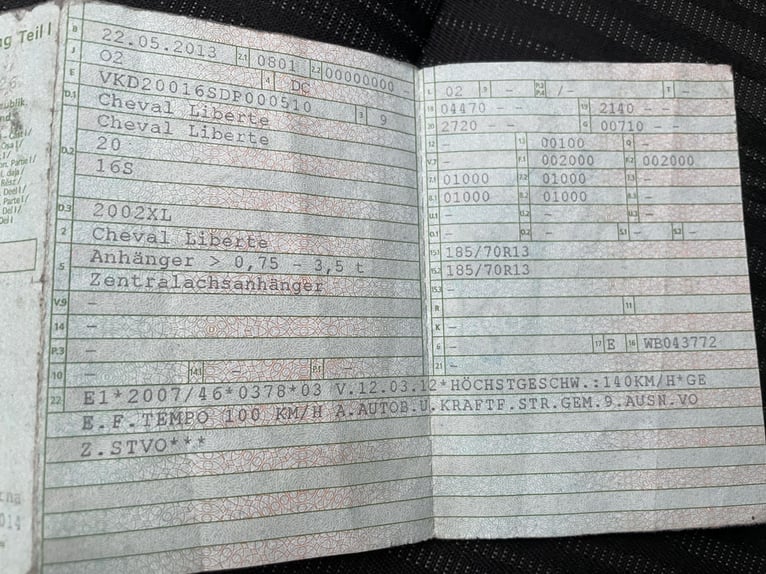 ng Teil I
B 22.05.2013 2.1 0801 2.2 00000000 -
J 02 4 DC
E VKD20016SDP000510 3 9
D.1 Cheval Liberte
Cheval Liberte
D.2 20
16S
D.3 2002XL
2 Cheval Liberte
5 Anhänger > 0,75 - 3,5 t
Zentralachsanhänger
V.9 -
14 -
P.3 -
10 - 14.1 - P.5 -
L 02 9 - P.2 P.4 -/- T -
18 04470 - - 19 2140 - -
20 2720 - - G 00710 - -
12 - 13 00100 Q -
V.7 - F.1 002000 F.2 002000
7.1 01000 7.2 01000 7.3 -
8.1 01000 8.2 01000 8.3 -
U.1 - U.2 - U.3 -
O.1 - O.2 - S.1 - S.2 -
15.1 185/70R13
15.2 185/70R13
15.3 -
R - 11
K -
6 - 17 E 16 WB043772
21 -
22 E1*2007/46*0378*03 V.12.03.12*HÖCHSTGESCHW.:140KM/H*GE
E.F.TEMPO 100 KM/H A.AUTOB.U.KRAFTF.STR.GEM.9.AUSN.VO
Z.STVO***